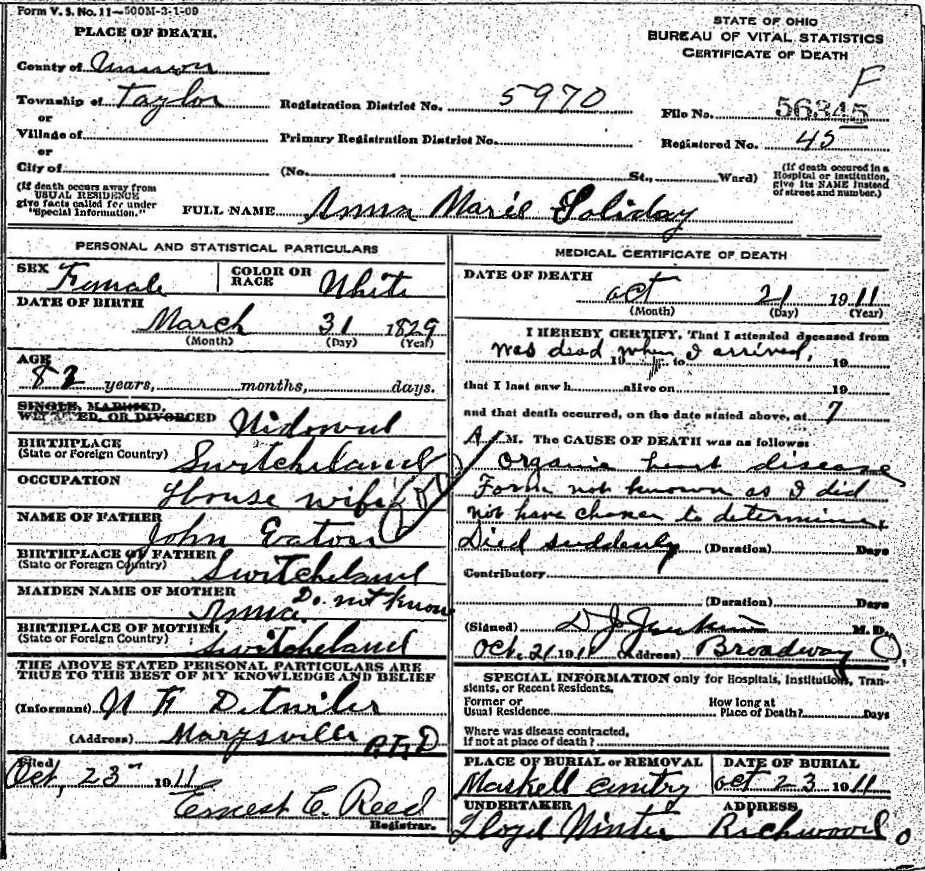 Form V. S. No. 11—500M-3-1-09
PLACE OF DEATH.
STATE OF OHIO
BUREAU OF VITAL STATISTICS
CERTIFICATE OF DEATH
County of Union
F
Township of Taylor
Registration District No. 5970
File No. 56345
or
Village of
Primary Registration District No.
Registered No. 45
or
City of
(No. , St., Ward)
(If death occured in a Hospital or institution, give its NAME instead of street and number.)
(If death occurs away from USUAL RESIDENCE give facts called for under "Special Information.")
FULL NAME Anna Marie Soliday
PERSONAL AND STATISTICAL PARTICULARS
SEX Female
COLOR OR RACE White
DATE OF BIRTH
March 31 1829
(Month) (Day) (Year)
AGE
82 years, months, days.
SINGLE, MARRIED,
WIDOWED, OR DIVORCED Widowed
BIRTHPLACE
(State or Foreign Country) Switcheland
OCCUPATION House wife
NAME OF FATHER John Eaton
BIRTHPLACE OF FATHER
(State or Foreign Country) Switcheland
MAIDEN NAME OF MOTHER Anna. Do not know
BIRTHPLACE OF MOTHER
(State or Foreign Country) Switcheland
THE ABOVE STATED PERSONAL PARTICULARS ARE
TRUE TO THE BEST OF MY KNOWLEDGE AND BELIEF
(Informant) N K Detwiler
(Address) Marysville RFD
Filed
Oct, 23 1911
Ernest C. Reed
Registrar.
MEDICAL CERTIFICATE OF DEATH
DATE OF DEATH
Oct 21 1911
(Month) (Day) (Year)
I HEREBY CERTIFY, That I attended deceased from
was dead when I arrived,
19 to 19
that I last saw h alive on 19
and that death occurred, on the date stated above, at 7
A M. The CAUSE OF DEATH was as follows:
Organic heart disease
Form not known as I did
not have chance to determine
Died suddenly (Duration) Days
Contributory
(Duration) Days
(Signed) D J Jenkins M. D.
Oct. 21 1911 (Address) Broadway O.
SPECIAL INFORMATION only for Hospitals, Institutions, Transients, or Recent Residents.
Former or
Usual Residence
How long at
Place of Death? Days
Where was disease contracted,
if not at place of death?
PLACE OF BURIAL or REMOVAL
Maskell cemtry
DATE OF BURIAL
Oct 23 1911
UNDERTAKER
Lloyd Winter
ADDRESS
Richwood O